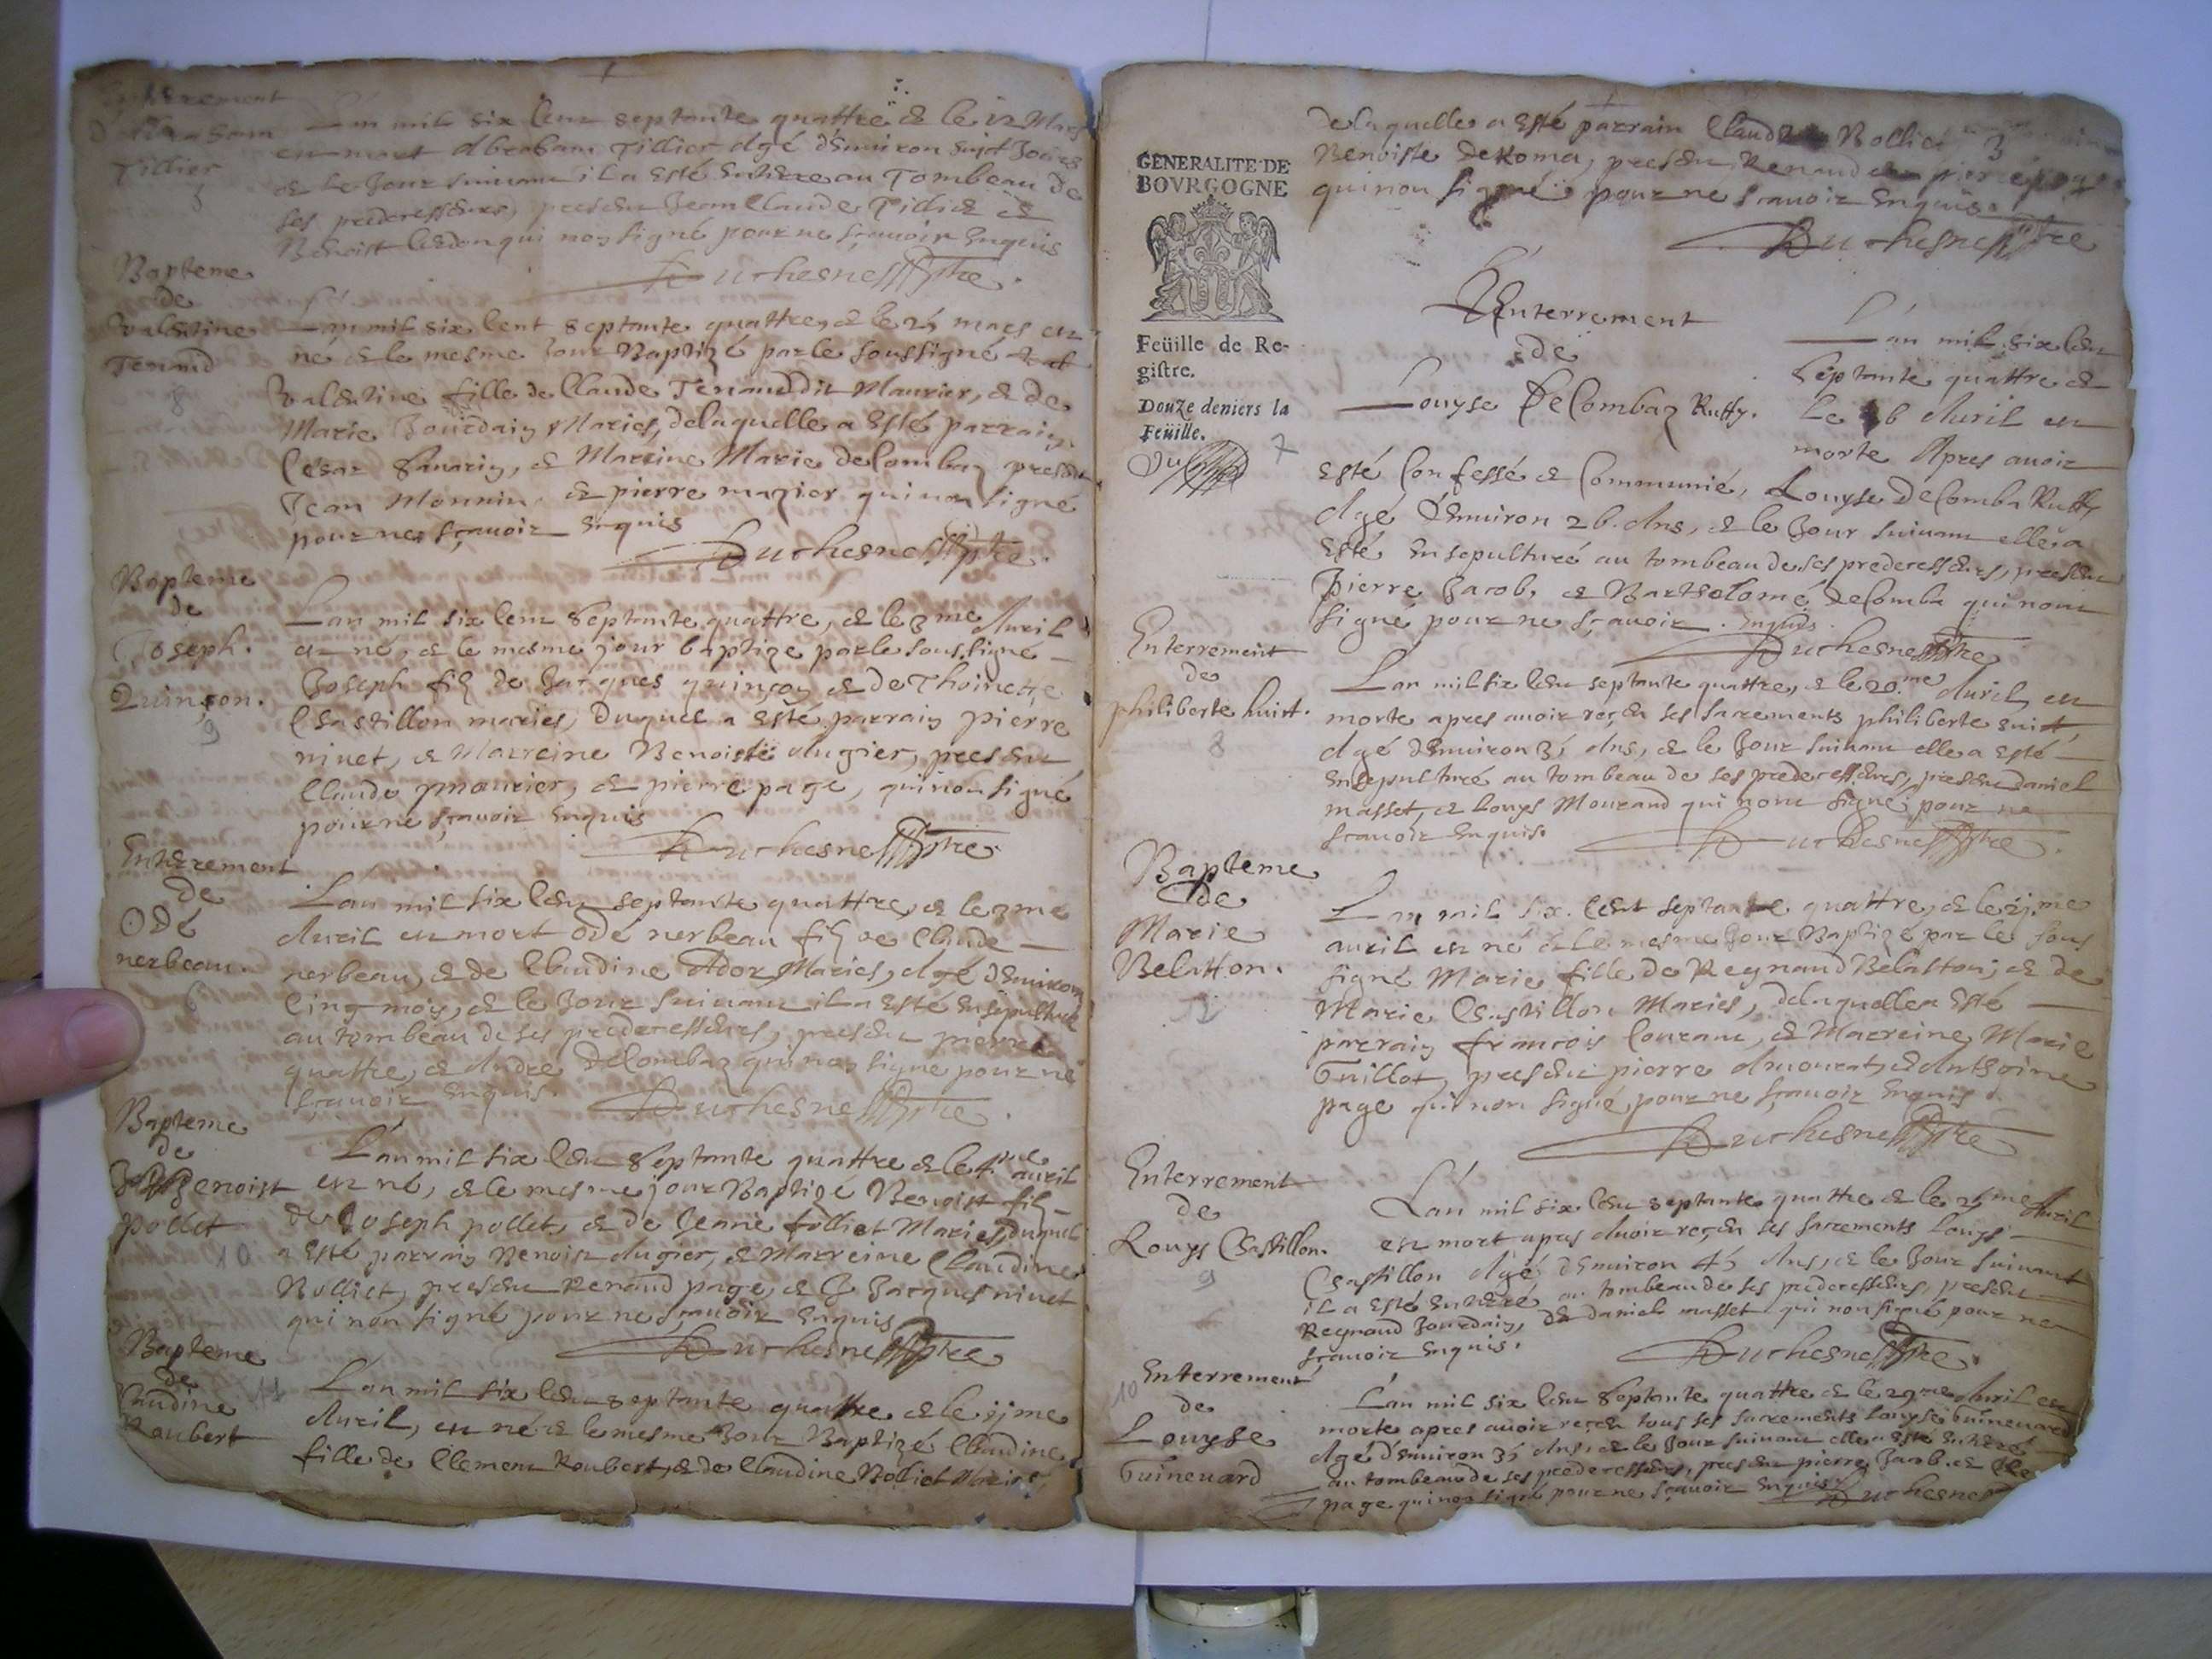 Enterrement
d'Abraham
Tillier
L'an mil six Cent septante quattre & le 12 Mars
est mort Abraham Tillier Agé d'Environ huict Jours
& le Jour suivant il a Esté Enterre au Tombeau de
ses predecesseurs, present Jean Claude Tillier &
Benoist qui non signé pour ne sçavoir Enquis
Duchesne Ptre
Bapteme
de
Valentine
Tenaud
8
L'an mil six Cent septante quattre, & le 24 mars est
né & le mesme Jour Baptizé par le soussigné
Valentine fille de Claude Tenaud dit Maurier, & de
Marie Jourdain Mariés, de laquelle a Esté parrain
César & Marreine Marie deCombaz present
Jean Monnin & pierre mazier qui non signé
pour ne sçavoir Enquis
Duchesne Ptre
Bapteme
de
Joseph
Quinson.
9
L'an mil six Cent septante quattre, & le 3me Avril
est né, & le mesme jour baptize par le soussigné
Joseph filz de Jacques quinson & de Thoinette
Chastillon mariés, Duquel a Esté parrain pierre
ninet, & Marreine Benoiste Augier, present
Claude maurier, & pierre page, qui non signé
pour ne sçavoir Enquis
Duchesne Ptre
Enterrement
de
Odé
nerbeau.
6
L'an mil six Cent septante quattre, & le 3me
Avril est mort Odé nerbeau filz de Claude
nerbeau, & de Claudine Ador Mariés, Agé d'Environ
Cinq mois, & le Jour suivant il a Esté Ensepulturé
au tombeau de ses predecesseurs, present pierre
quattre, & Andre deCombaz qui non signe pour ne
sçavoir Enquis.
Duchesne Ptre
Bapteme
de
Benoist
pollet
10
L'an mil six Cent septante quattre & le 4me avril
est né, & le mesme jour Baptizé Benoist filz
de Joseph pollet, & de Jeanne filliet Mariés, duquel
a Esté parrain Benoist Augier, & Marreine Claudine
Bolliet, present Renaud page, & Jacques ninet
qui non signé pour ne sçavoir Enquis
Duchesne Ptre
Bapteme
de
Claudine
Roubert
11
L'an mil six Cent septante quattre & le jjme
Avril, est né & le mesme Jour Baptizé Claudine
fille de Clement Roubert, & de Claudine Bolliet Mariés,
de laquelle a Esté parrain Claude Bolliet
3
Benoiste deRoma, present Renaud & pierre page
qui non signé pour ne sçavoir Enquis.
Duchesne Ptre
GENERALITE DE
BOVRGOGNE
Feüille de Re-
gistre.
Douze deniers la
Feüille.
7
Enterrement
de
Louyse DeCombaz Ruffy.
L'an mil six Cent
septante quattre &
le 6 Avril est
morte Apres avoir
Esté Confessé & Communié, Louyse DeComba Ruffy
Agé d'Environ 26. Ans, & le Jour suivant elle a
Esté Ensepulturé au tombeau de ses predecesseurs, present
Pierre Jacob, & Bartholomé deComba qui n'ont
signé pour ne sçavoir. Enquis.
Duchesne Ptre
Enterrement
de
philiberte huict.
8
L'an mil six Cent septante quattre, & le 20.me Avril, est
morte apres avoir reçeu ses sacrements philiberte huict,
Agé d'Environ 35 Ans, & le Jour suivant elle a Esté
Ensepulturé au tombeau de ses predecesseurs, present daniel
masset, & Louys Mouraud qui n'ont signé, pour ne
sçavoir Enquis.
Duchesne Ptre
Bapteme
de
Marie
Belatton.
12
L'an mil six. Cent septante quattre, & le 2j.me
auril est né & le mesme Jour Baptizé par le sous
signé Marie fille de Reynaud Belatton, & de
Marie Chastillon Mariés, de laquelle a Esté
parrain francois Courant, & Marreine Marie
Guillot, present pierre & Anthoine
page qui non signé, pour ne sçavoir Enquis.
Duchesne Ptre
Enterrement
de
Louys Chastillon.
9
L'an mil six Cent septante quattre & le 24me Avril
est mort apres Avoir reçeu ses sacrements Louys
Chastillon Agé d'Environ 45 Ans, & le Jour suivant
il a Esté Enterré au tombeau de ses predecesseurs, present
Reynaud Jourdain, & daniel masset qui non signé pour ne
sçavoir Enquis.
Duchesne Ptre
10
Enterrement
de
Louyse
Guinevard
L'an mil six Cent septante quattre & le 29me Avril est
morte apres avoir reçeu tous ses sacrements Louyse Guinevard
Agé d'Environ 35 Ans, & le Jour suivant elle a Esté Enterré
au tombeau de ses predecesseurs, present pierre Jacob, &
page qui non signé pour ne sçavoir Enquis
Duchesne